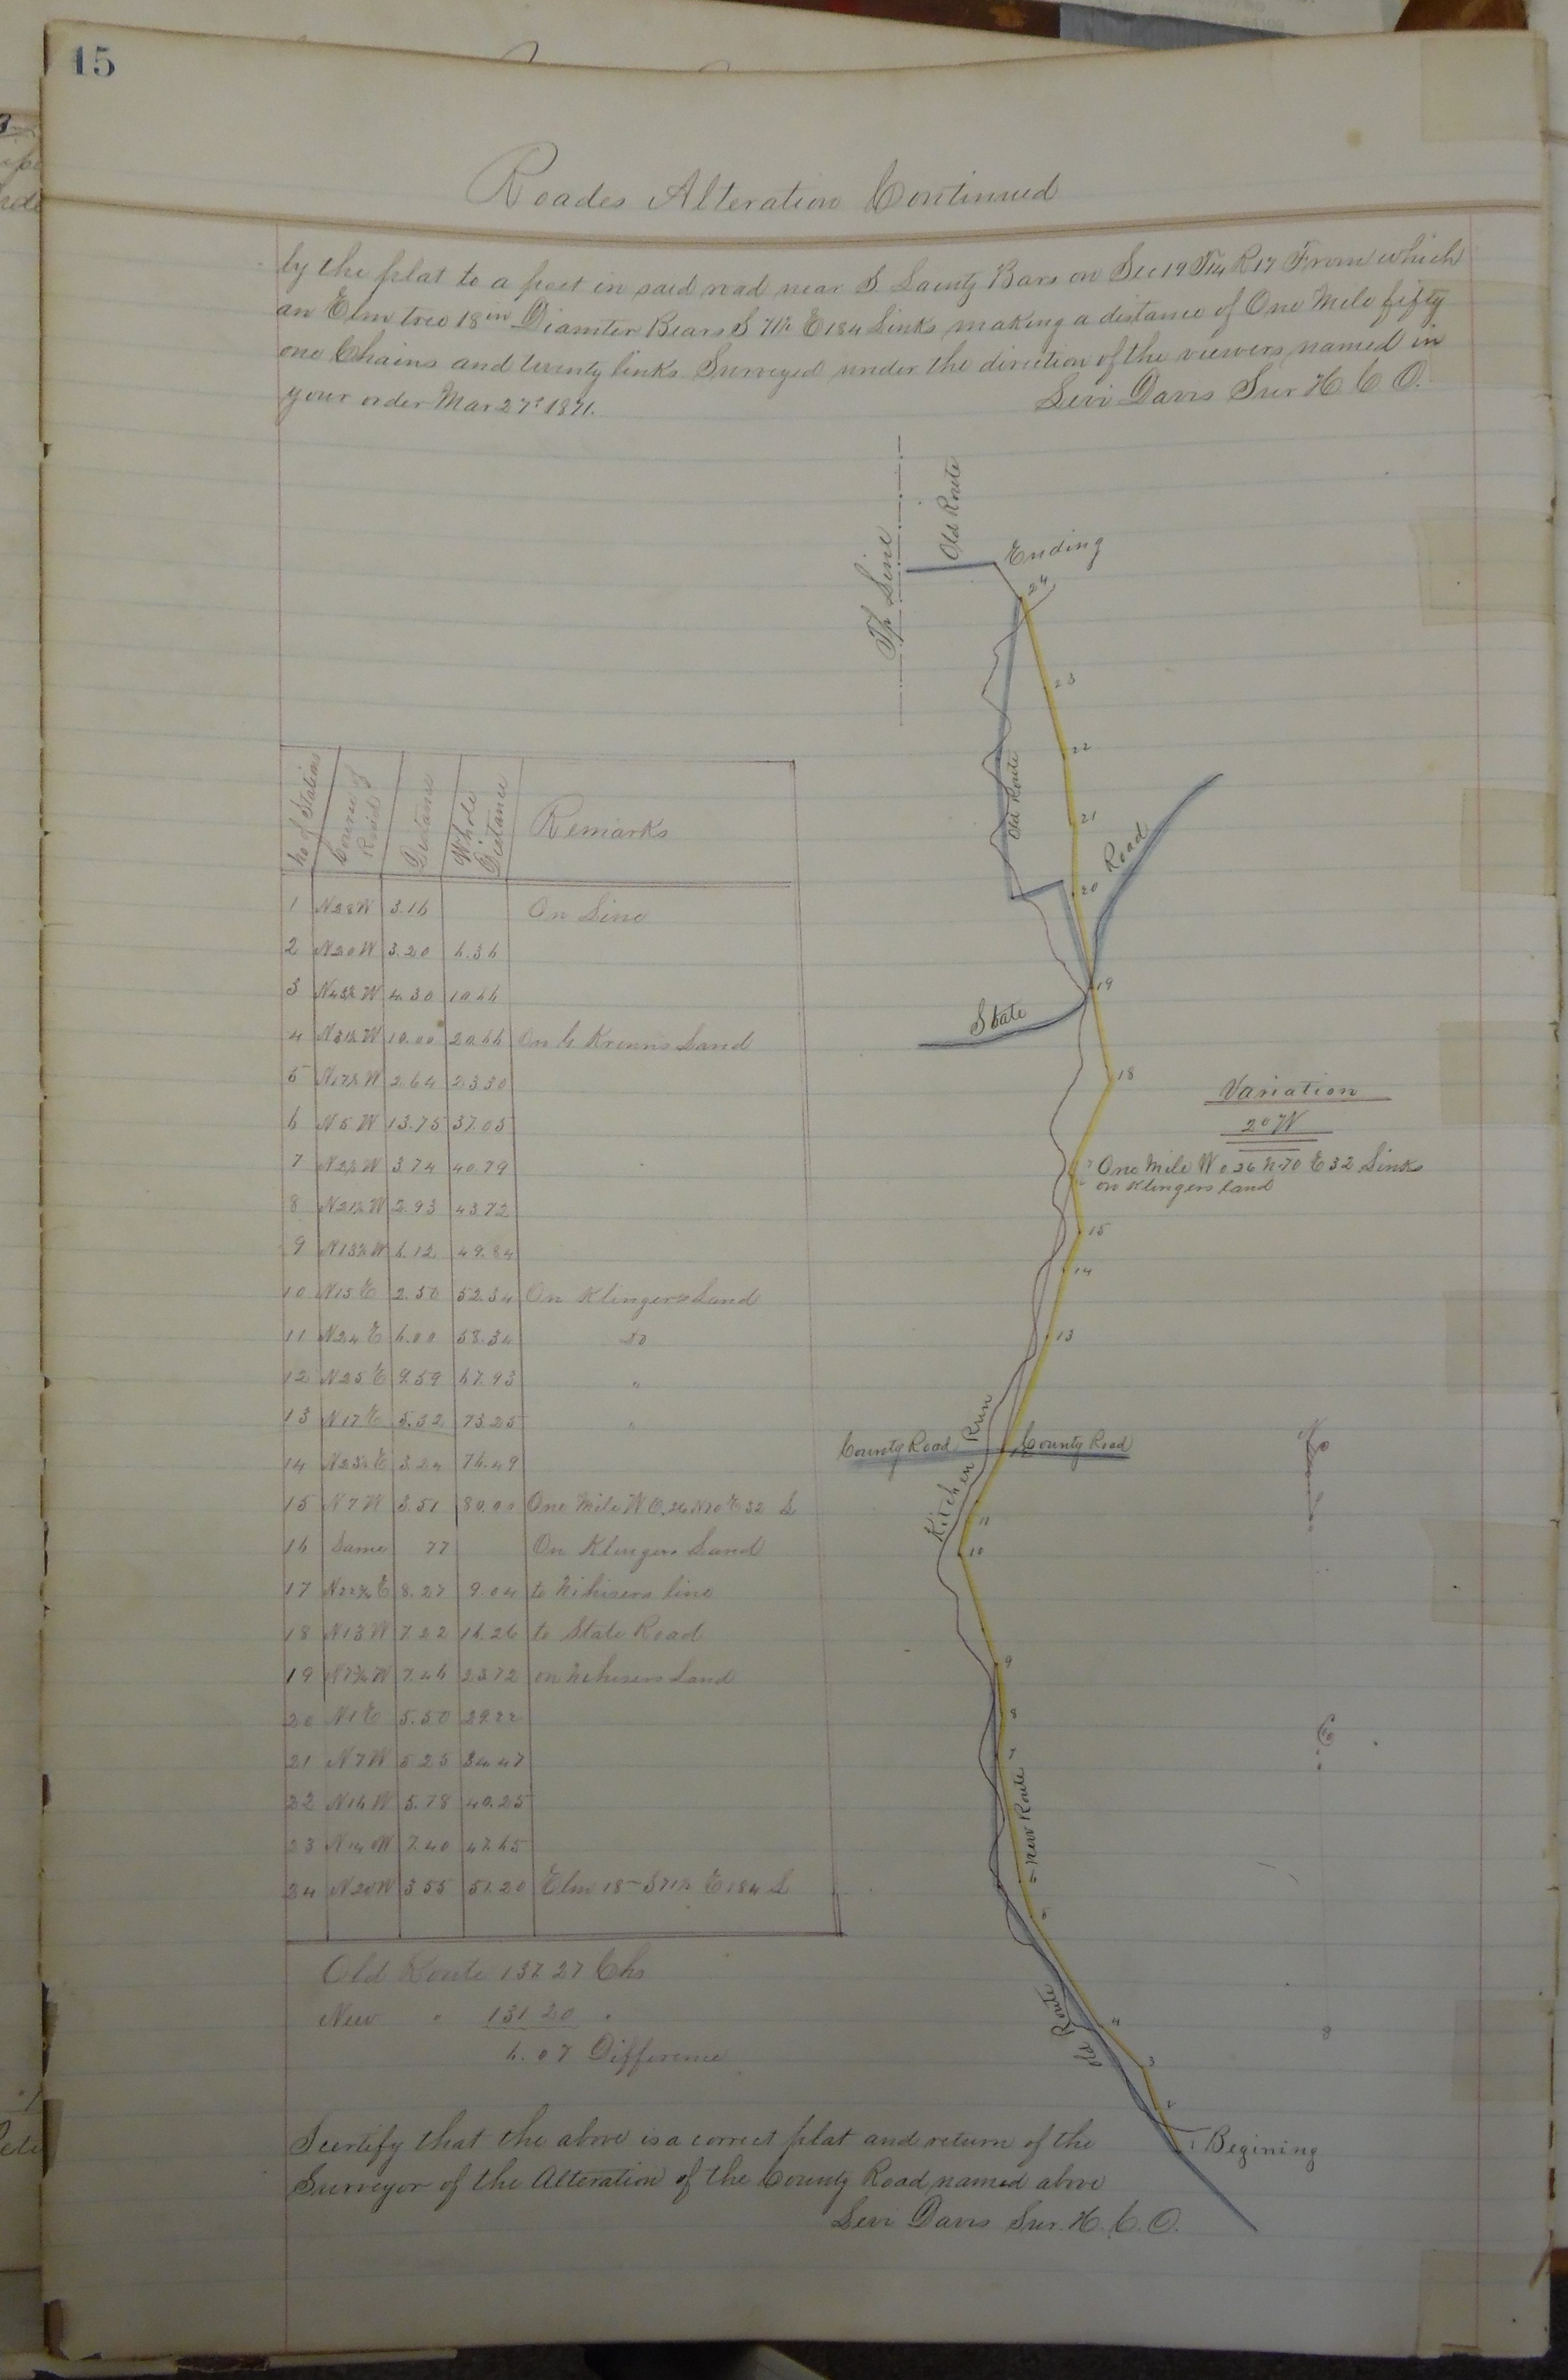 15
Roades Alteration Continued
by the plat to a post in said road near S Lauty Bars on Sec 19 T14 R17 From which
an Elm tree 18in Diamter Bears S 71½ E 184 Links making a distance of One Mile fifty
one Chains and twenty links Surveyed under the direction of the viewers named in
your order Mar 27t 1871.
Levi Davis Sur H C O.
Old Route
Tp Line
Ending
24
23
22
21
Old Route
Road
20
19
State
18
Variation
2° W
One Mile W O 26 N 70 E 32 Links
on Klingers land
15
14
13
Kitchen Run
County Road
County Road
11
10
9
8
7
New Route
5
4
Old Route
3
2
1
Begining
No of Stations
Course of Road
Distance
Whole Distance
Remarks
1 N28W 3.16 On Line
2 N20W 3.20 6.36
3 N43½W 4.30 10.66
4 N31½W 10.00 20.66 On Land
5 N17½W 2.64 23.30
6 N5W 13.75 37.05
7 N2½W 3.74 40.79
8 N21½W 2.93 43.72
9 N13½W 6.12 49.84
10 N15E 2.50 52.34 On Klingers Land
11 N24E 6.00 58.34 do
12 N25E 9.59 67.93 "
13 N17E 5.32 73.25 "
14 N23½E 3.24 76.49
15 N7W 3.51 80.00 One Mile W O. 26 N70 E 32 L
16 Same 77 On Klingers Land
17 N22½E 8.27 9.04 to Nihisers line
18 N13W 7.22 16.26 to State Road
19 N7¾W 7.46 23.72 on Nihisers Land
20 N1E 5.50 29.22
21 N7W 5.25 34.47
22 N16W 5.78 40.25
23 N14W 7.40 47.65
24 N20W 3.55 51.20 Elm 18 - S71½ E 184 L
Old Route 137 27 Chs
New " 131 20 "
6.07 Difference
I certify that the above is a correct plat and return of the
Surveyor of the Alteration of the County Road named above
Levi Davis Sur. H. C. O.